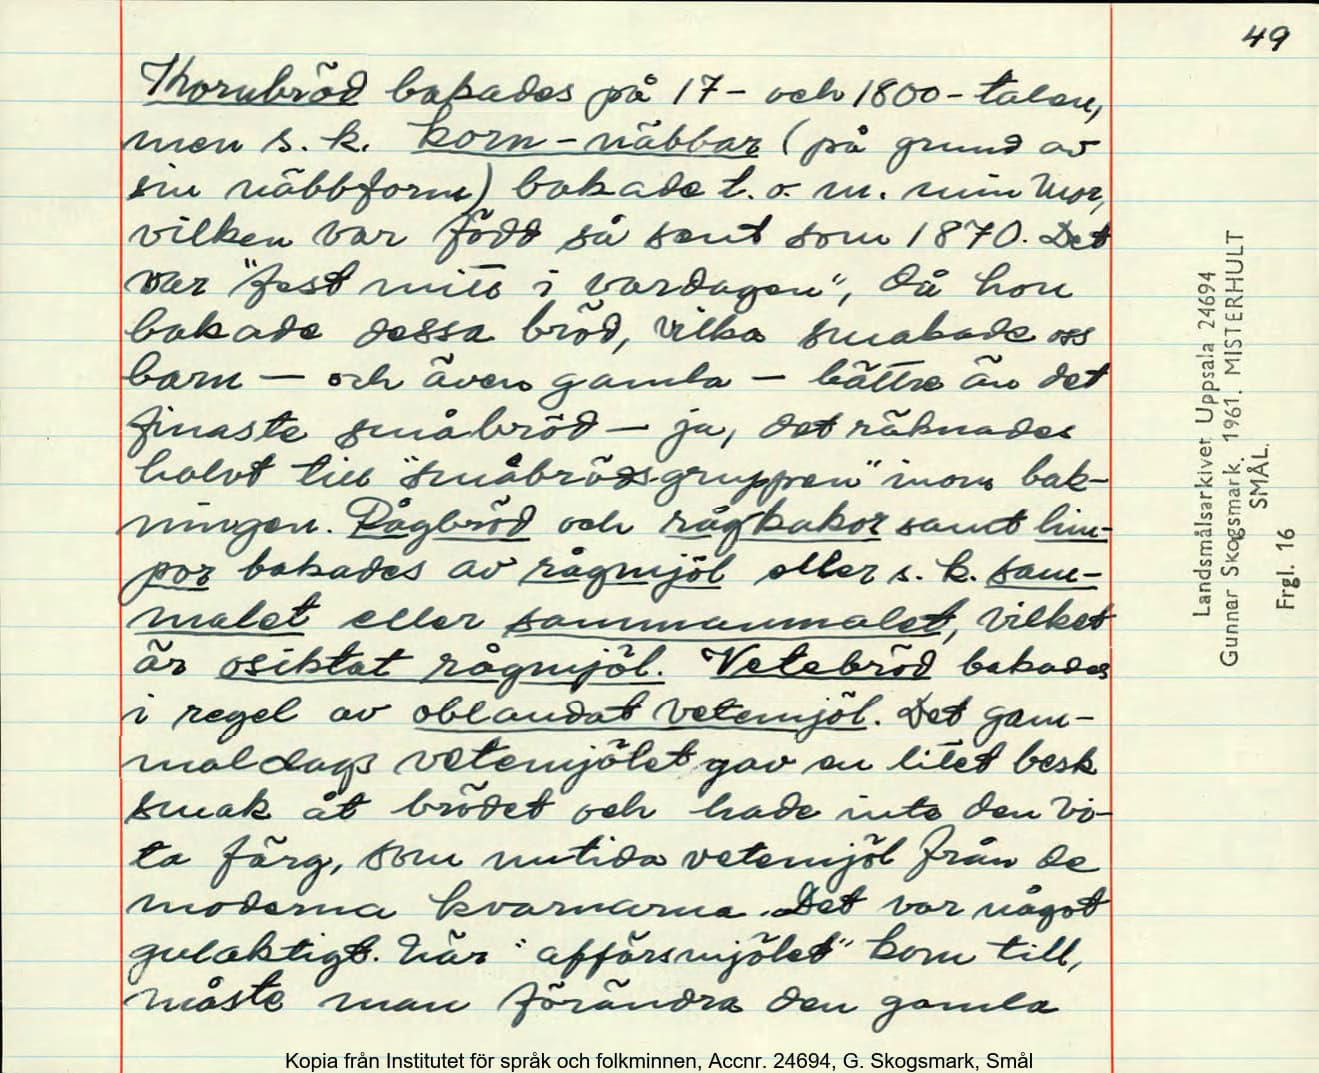 49
Kornbröd bakades på 17- och 1800-talen,
men s. k. korn-näbbar (på grund av
sin näbbform) bakade t. o. m. min mor,
vilken var född så sent som 1870. Det
var "fest mitt i vardagen", då hon
bakade dessa bröd, vilka smakade oss
barn — och även gamla — bättre än det
finaste småbröd — ja, det räknades
halvt till "småbrödsgruppen" inom bak-
ningen. Rågbröd och rågkakor samt lim-
por bakades av rågmjöl eller s. k. sam-
malet eller sammanmalet, vilket
är osiktat rågmjöl. Vetebröd bakades
i regel av oblandat vetemjöl. Det gam-
maldags vetemjölet gav en litet besk
smak åt brödet och hade inte den vi-
ta färg, som nutida vetemjöl från de
moderna kvarnarna. Det var något
gulaktigt. När "affärsmjölet" kom till,
måste man förändra den gamla
Landsmålsarkivet Uppsala 24694
Gunnar Skogsmark. 1961. MISTERHULT
SMÅL.
Frgl. 16
Kopia från Institutet för språk och folkminnen, Accnr. 24694, G. Skogsmark, Smål